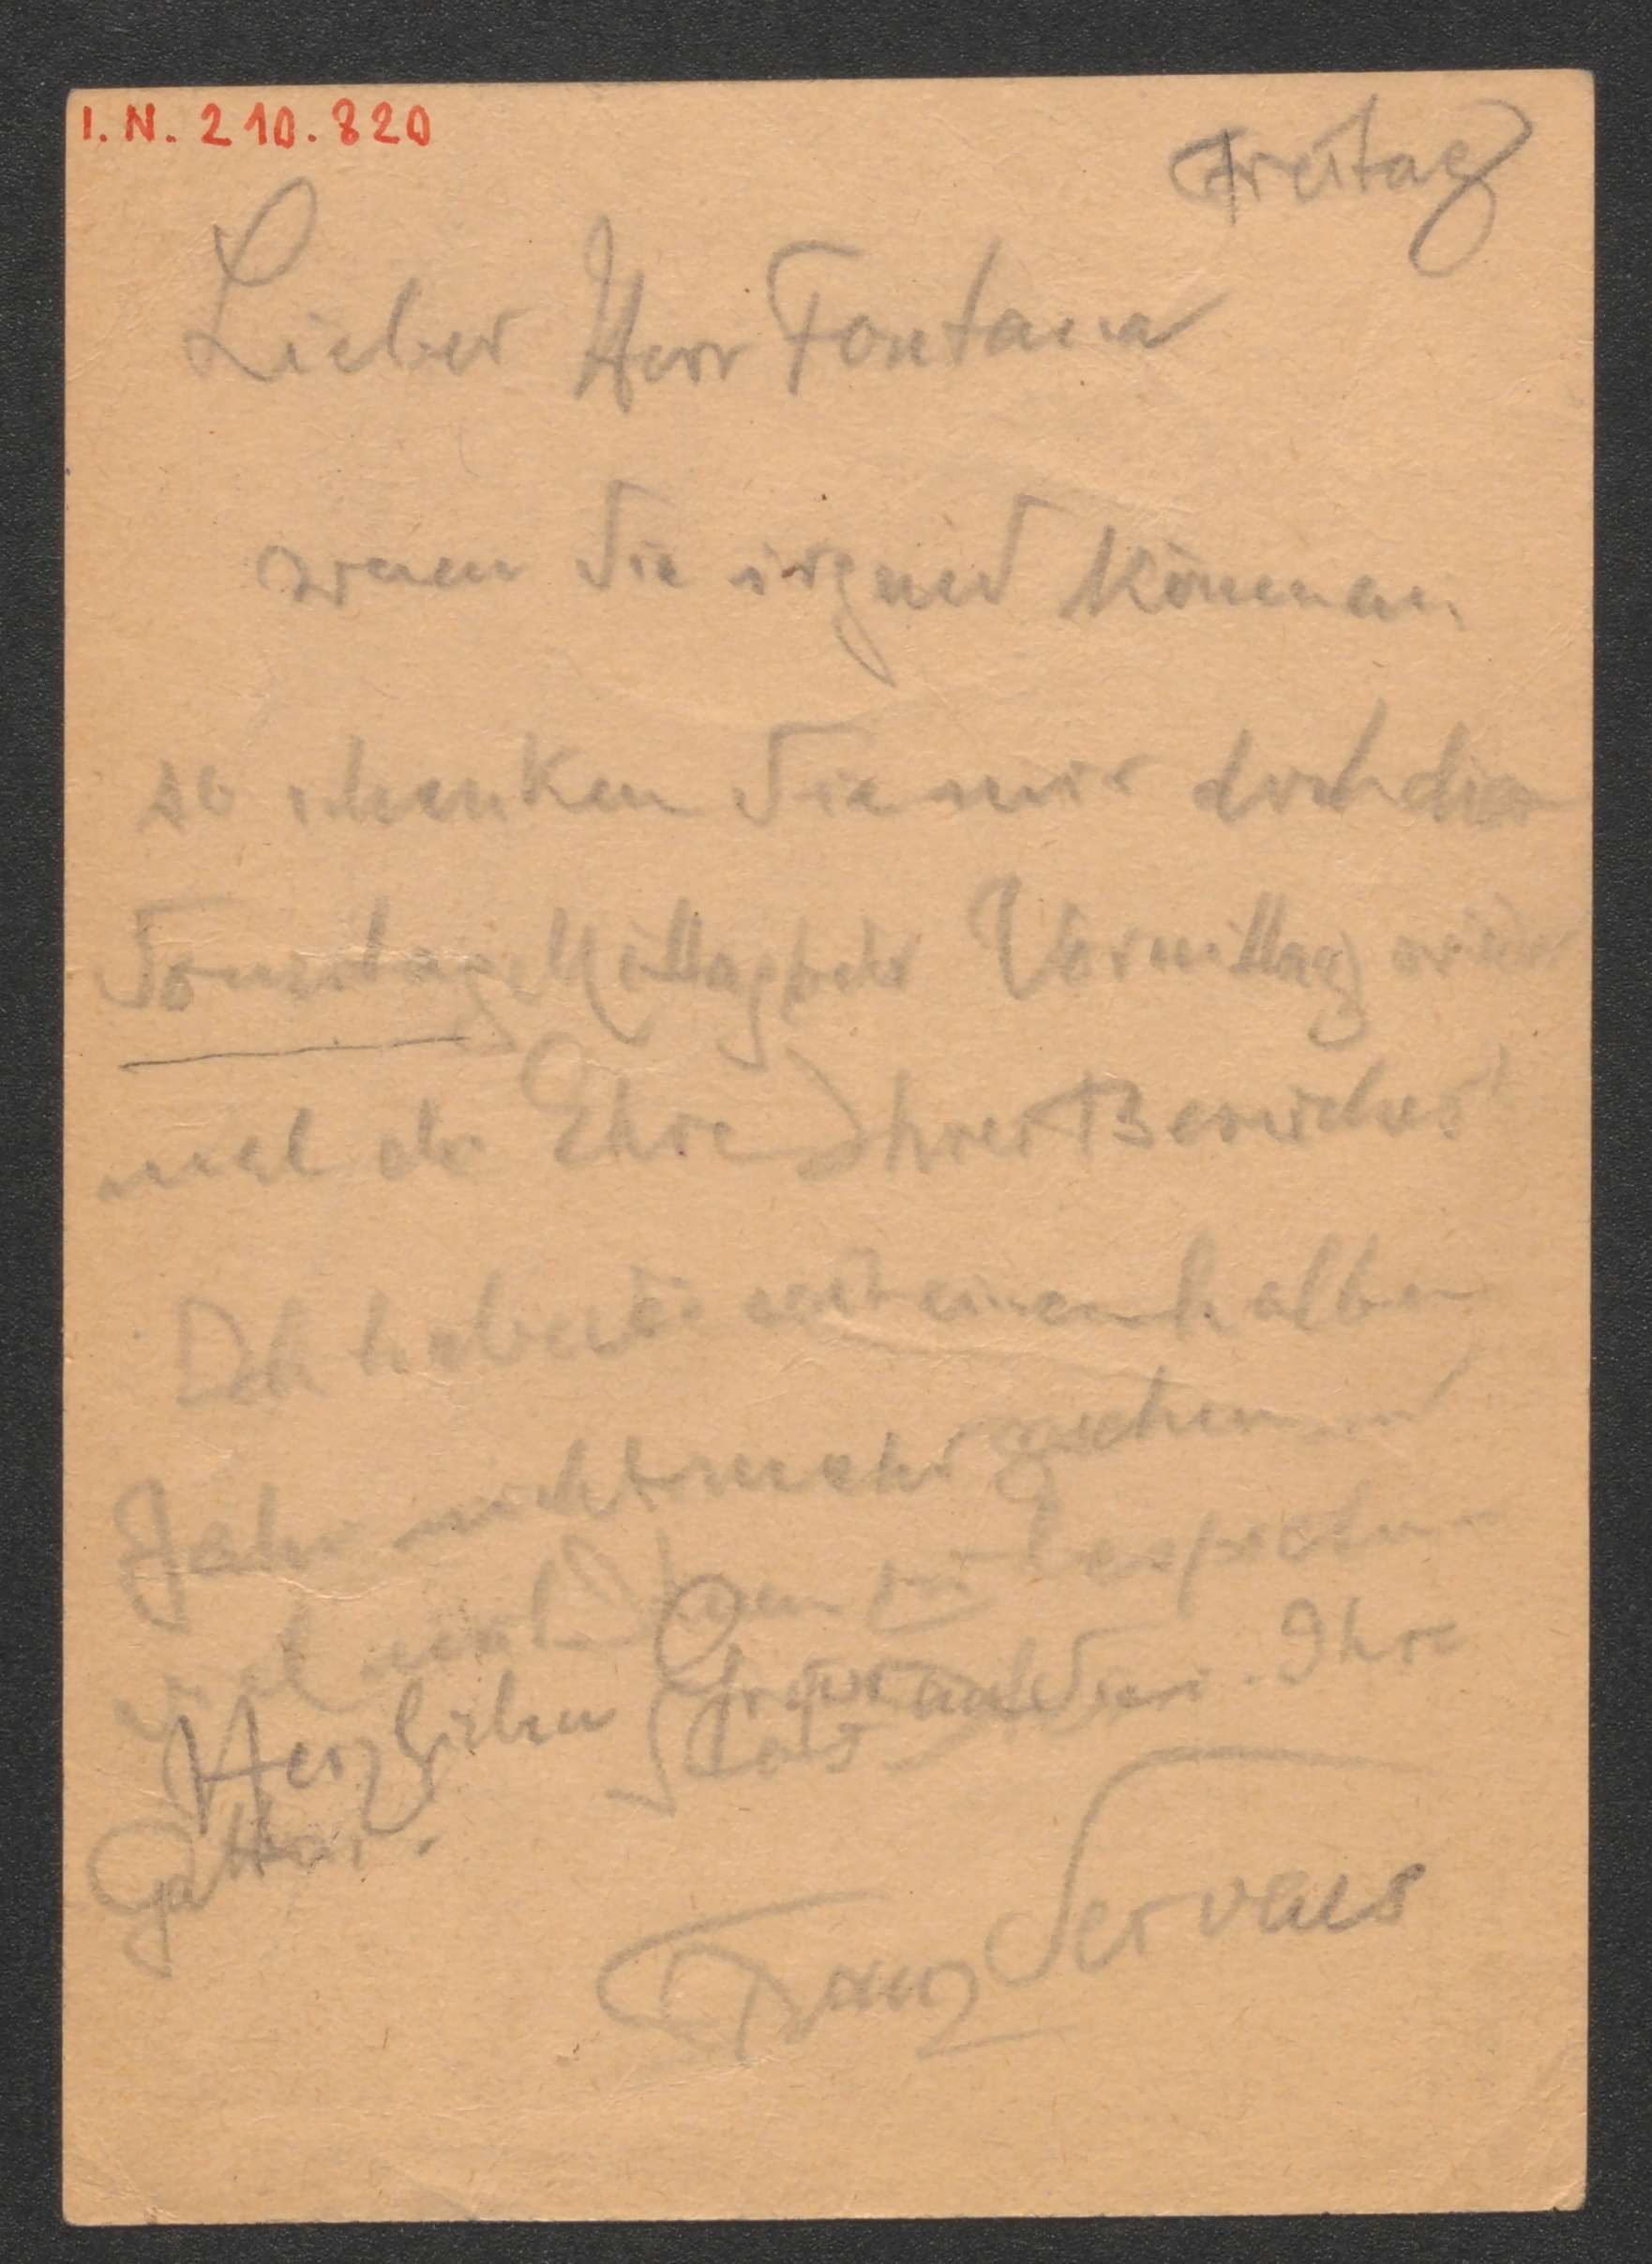 I. N. 210.820
Freitag
Lieber Herr Fontana
wenn Sie irgend können
so schenken Sie mir doch
Sonntag Mittag oder Vormittag
mal die Ehre Ihres Besuches!
Ich habe Sie seit einem halben
Jahr nicht mehr gesehen und
viel mit Ihnen zu besprechen
Herzlichen Gruss Ihre
Gattin.
Franz Servaes